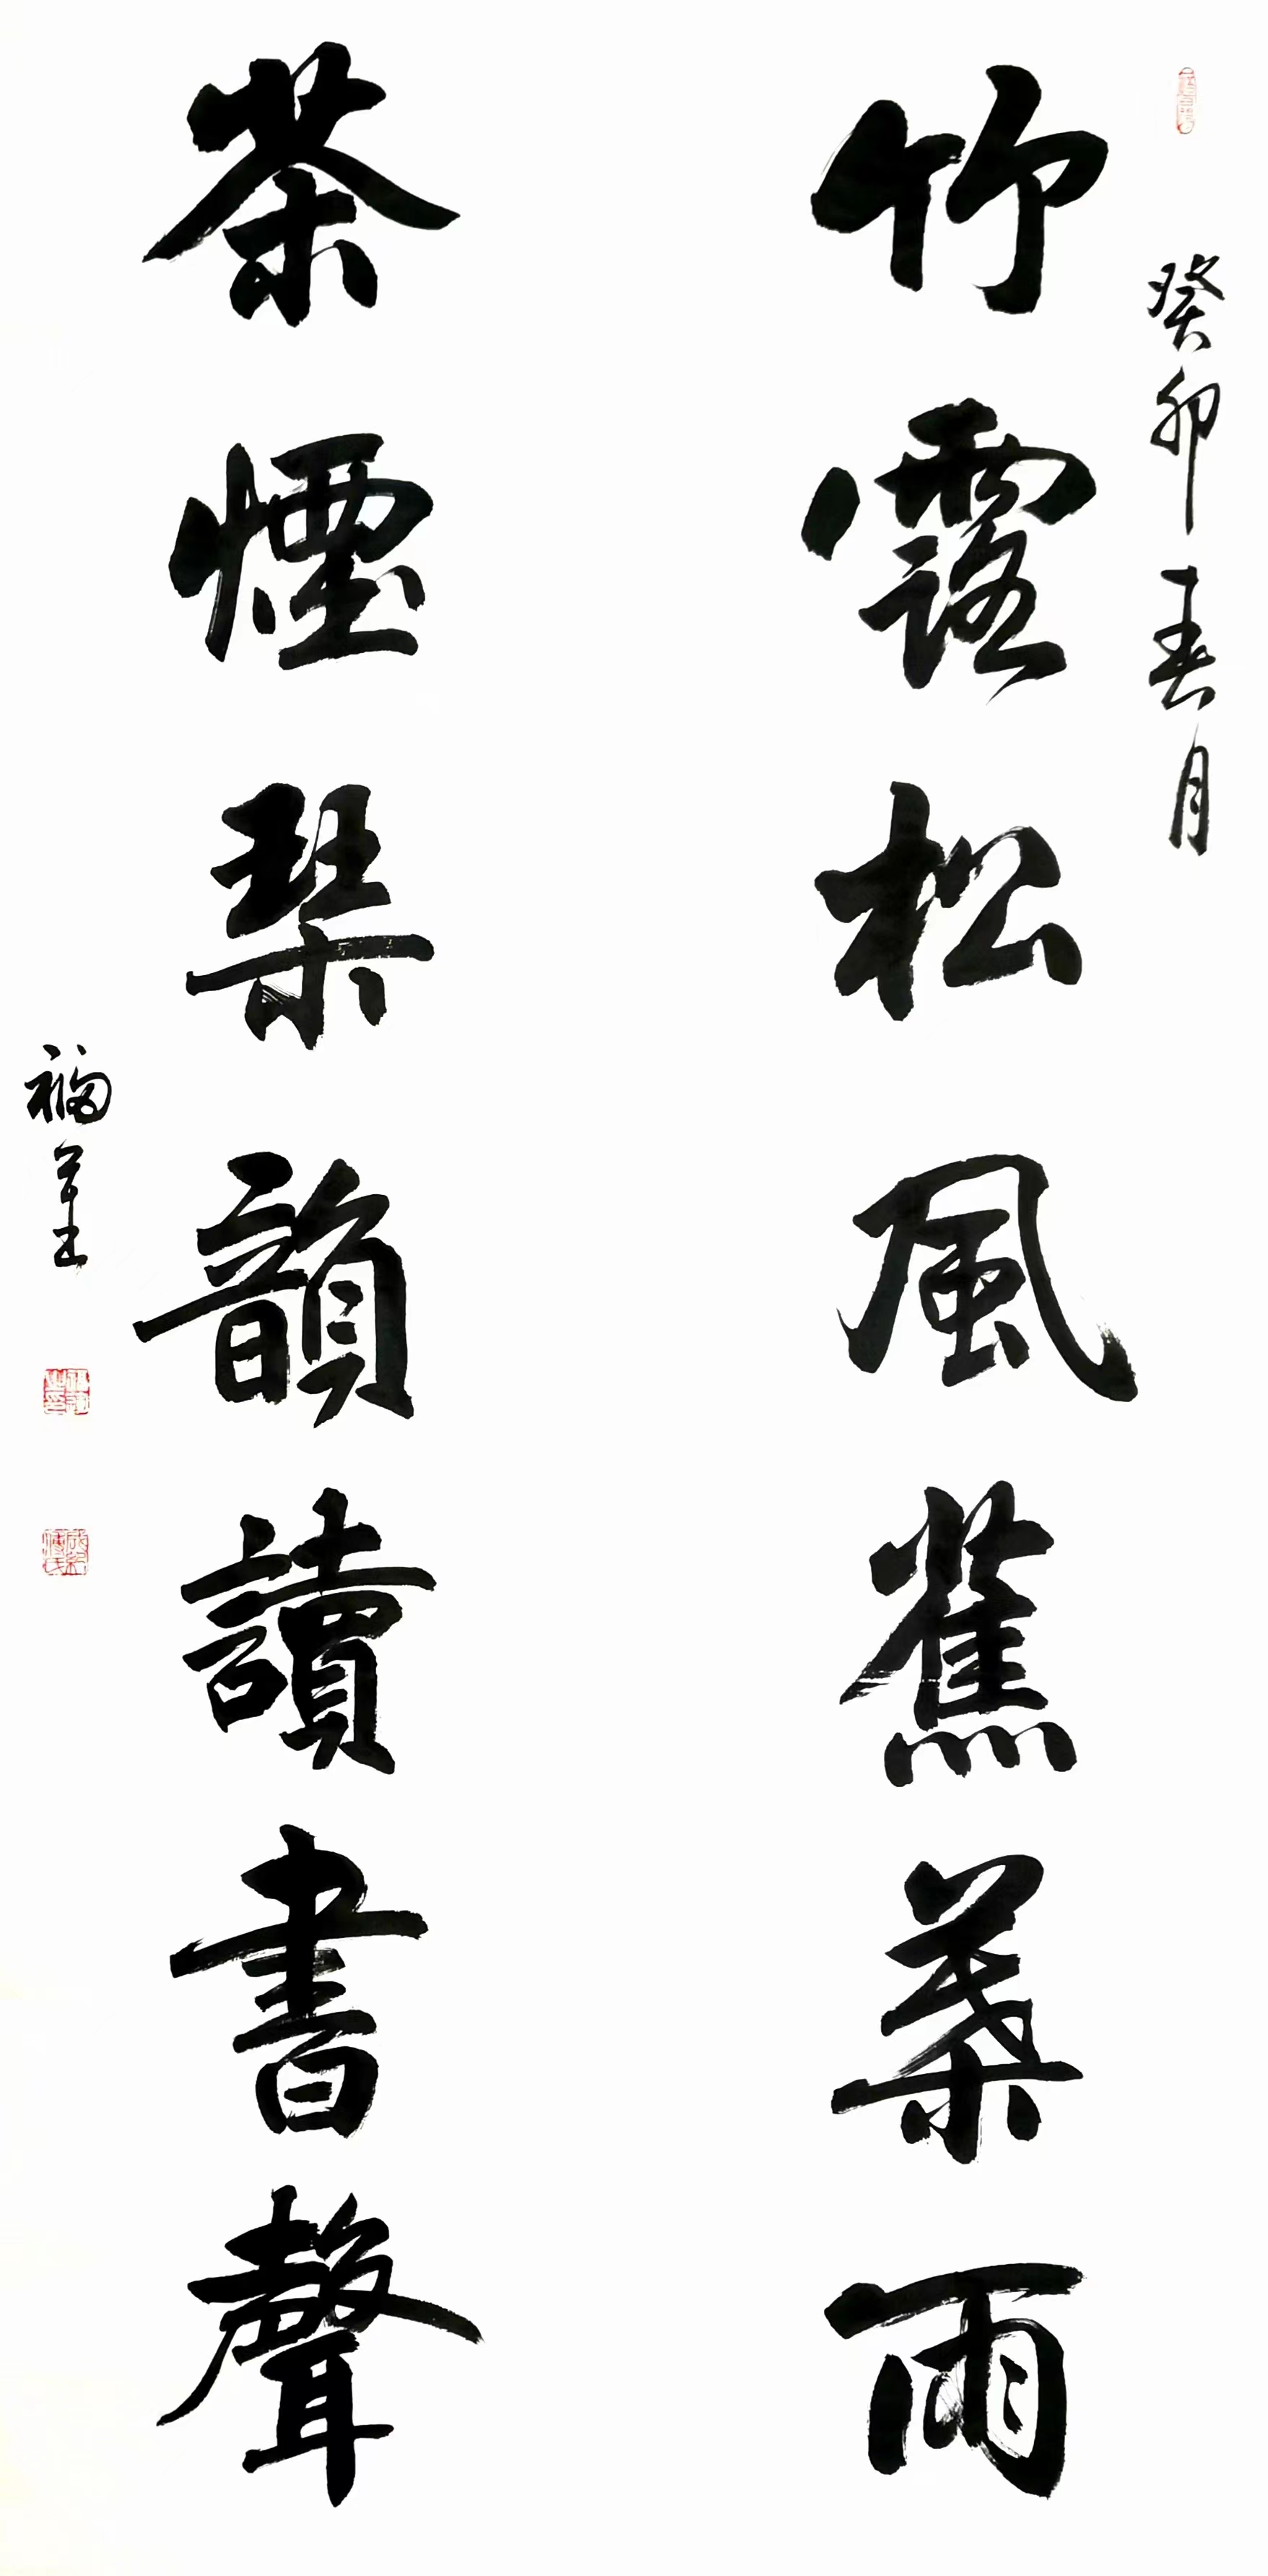 癸卯春月
竹露松風蕉葉雨
茶煙琴韻讀書聲
福